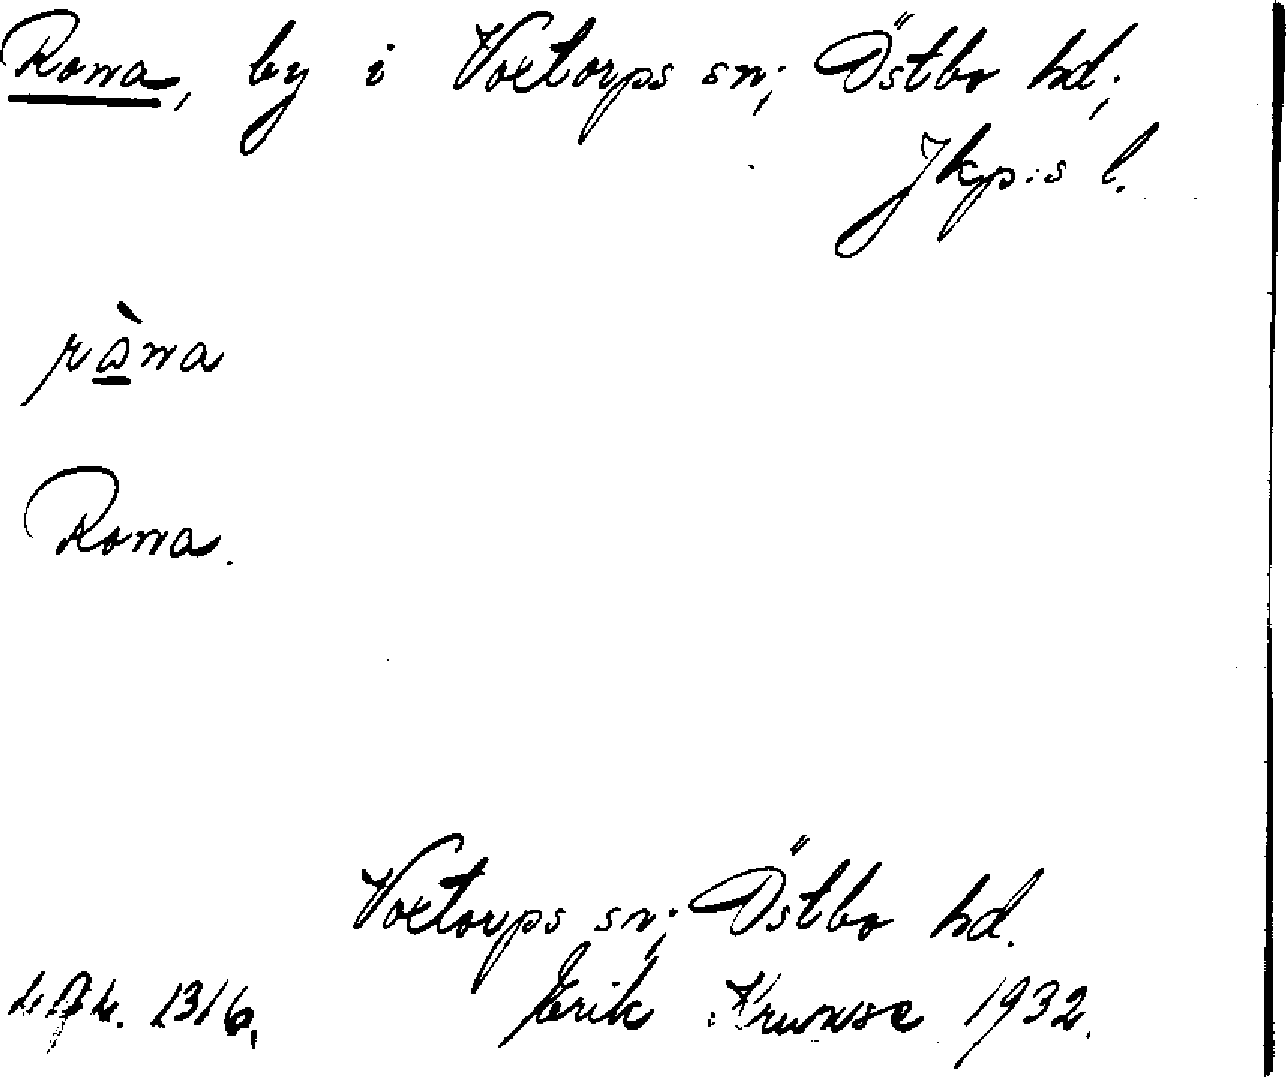 Rona, by i Voxtorps sn; Östbo hd;
Jkp:s l.
ròna
Rona.
Voxtorps sn; Östbo hd.
Erik Kruuse 1932.